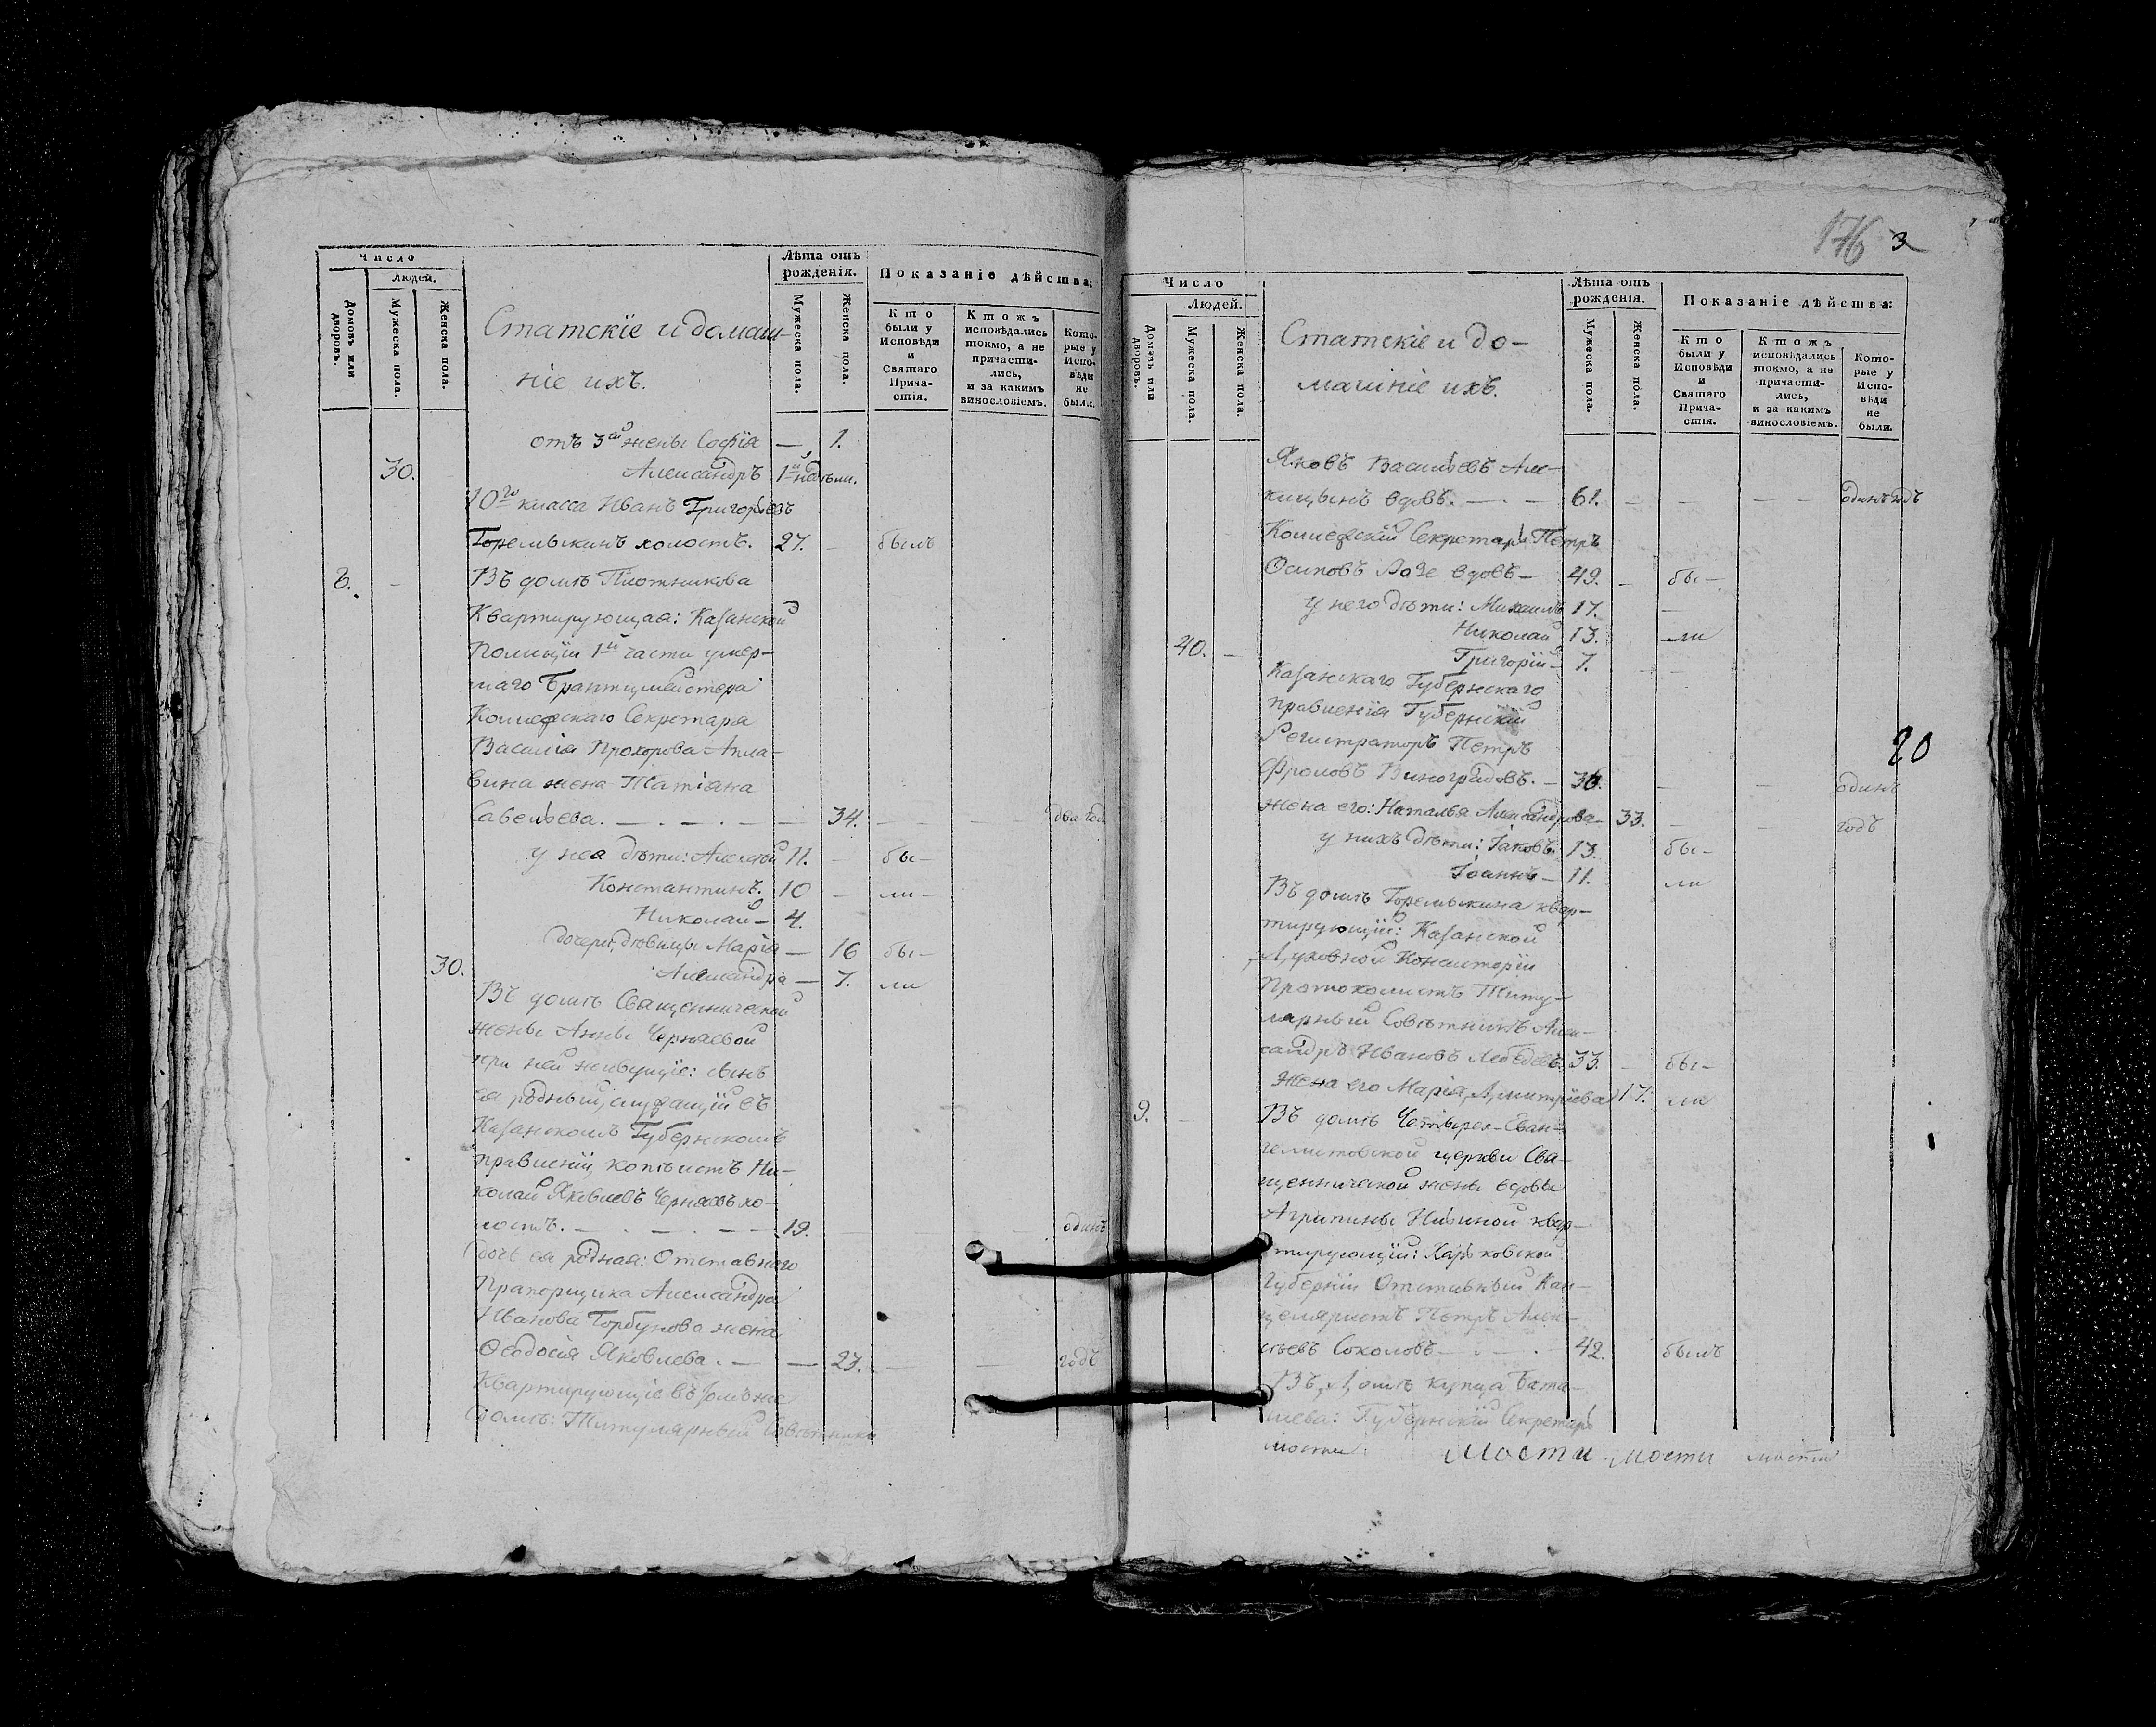 Число
Людей.
Домовъ или дворовъ.
Мужеска пола.
Женска пола.
Статскіе и домаш-
ніе ихъ.
Лѣта отъ рожденія.
Мужеска пола.
Женска пола.
Показаніе дѣйства:
Кто были у Исповѣди и Святаго Причастія.
Ктожъ исповѣдались токмо, а не причастились, и за какимъ винословіемъ.
Которые у Исповѣди не были.
отъ 3й жены Софія — 1.
30. Александръ 1й недѣли.
10го класса Иванъ Григорьевъ
Горемыкинъ холостъ. 27. — былъ
8. — Въ домѣ Плотникова
Квартирующая: Казанской
Полиціи 1й части умер-
шаго Брантцмейстера
Коллежскаго Секретаря
Василія Прохорова Апла-
вина жена Татіана
Савельева. — 34. — — два года
у нея дѣти: Алексѣй 11. — бы-
Константинъ. 10 — ли-
Николай — 4.
дочери, дѣвицы Марія — 16 бы-
30. Александра — 7. ли
Въ домѣ Священнической
жены Анны Черняевой
при ней живущіе: сынъ
ея родный, служащій въ
Казанскомъ Губернскомъ
правленіи, копіистъ Ни-
колай Яковлевъ Черняевъ хо-
лостъ. — 19. одинъ
дочь ея родная: Отставнаго
Прапорщика Александра
Иванова Горбунова жена
Ѳеодосія Яковлева. — 27. — — годъ
Квартирующіе въ томъ же
домѣ: Титулярный Совѣтникъ
176 3
Число
Людей.
Домовъ или дворовъ.
Мужеска пола.
Женска пола.
Статскіе и до-
машніе ихъ.
Лѣта отъ рожденія.
Мужеска пола.
Женска пола.
Показаніе дѣйства:
Кто были у Исповѣди и Святаго Причастія.
Ктожъ исповѣдались токмо, а не причастились, и за какимъ винословіемъ.
Которые у Исповѣди не были.
Яковъ Васильевъ Але-
кицынъ вдовъ. — 61. — — — одинъ годъ
Коллежскій Секретарь Петръ
Осиповъ вдовъ — 49. — бы-
у него дѣти: Михаилъ 17. —
Николай 13. — ли
40. — Григорій — 7. —
Казанскаго Губернскаго
правленія Губернскій
Регистраторъ Петръ
20
Фроловъ Виноградовъ. — 36. — — одинъ
жена его: Наталья Александрова — 33. — — годъ
у нихъ дѣти: Іаковъ. 13. бы-
Іоаннъ — 11. ли
Въ домѣ Горемыкина квар-
тирующій: Казанской
Духовной Консисторіи
Протоколистъ Титу-
лярный Совѣтникъ Алек-
сандръ Ивановъ Лебедевъ. 33. — бы-
Жена его Марія Дмитріева 17. ли
9. — Въ домѣ Четырех-Еван-
гелистовской церкви Свя-
щеннической жены вдовы
Агрипины Ниловой квар-
тирующій: Харьковской
Губерніи Отставный Кан-
целяристъ Петръ Алек-
сѣевъ Соколовъ — 42. былъ
Въ домѣ купца Бата-
шева: Губернскій Секретарь
мости мости мости мости